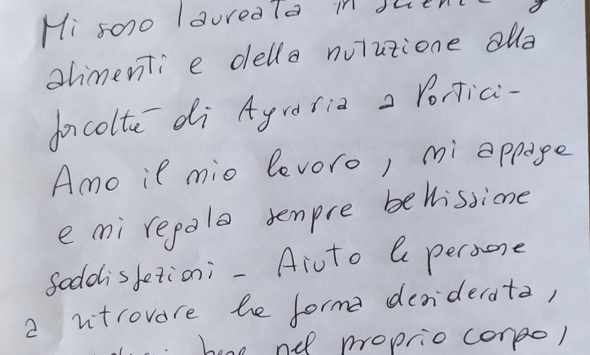 Mi sono laureata in
alimenti e della nutrizione alla
facoltà di Agraria a Portici -
Amo il mio lavoro, mi appaga
e mi regala sempre bellissime
soddisfazioni - Aiuto le persone
a ritrovare la forma desiderata,
bene nel proprio corpo,